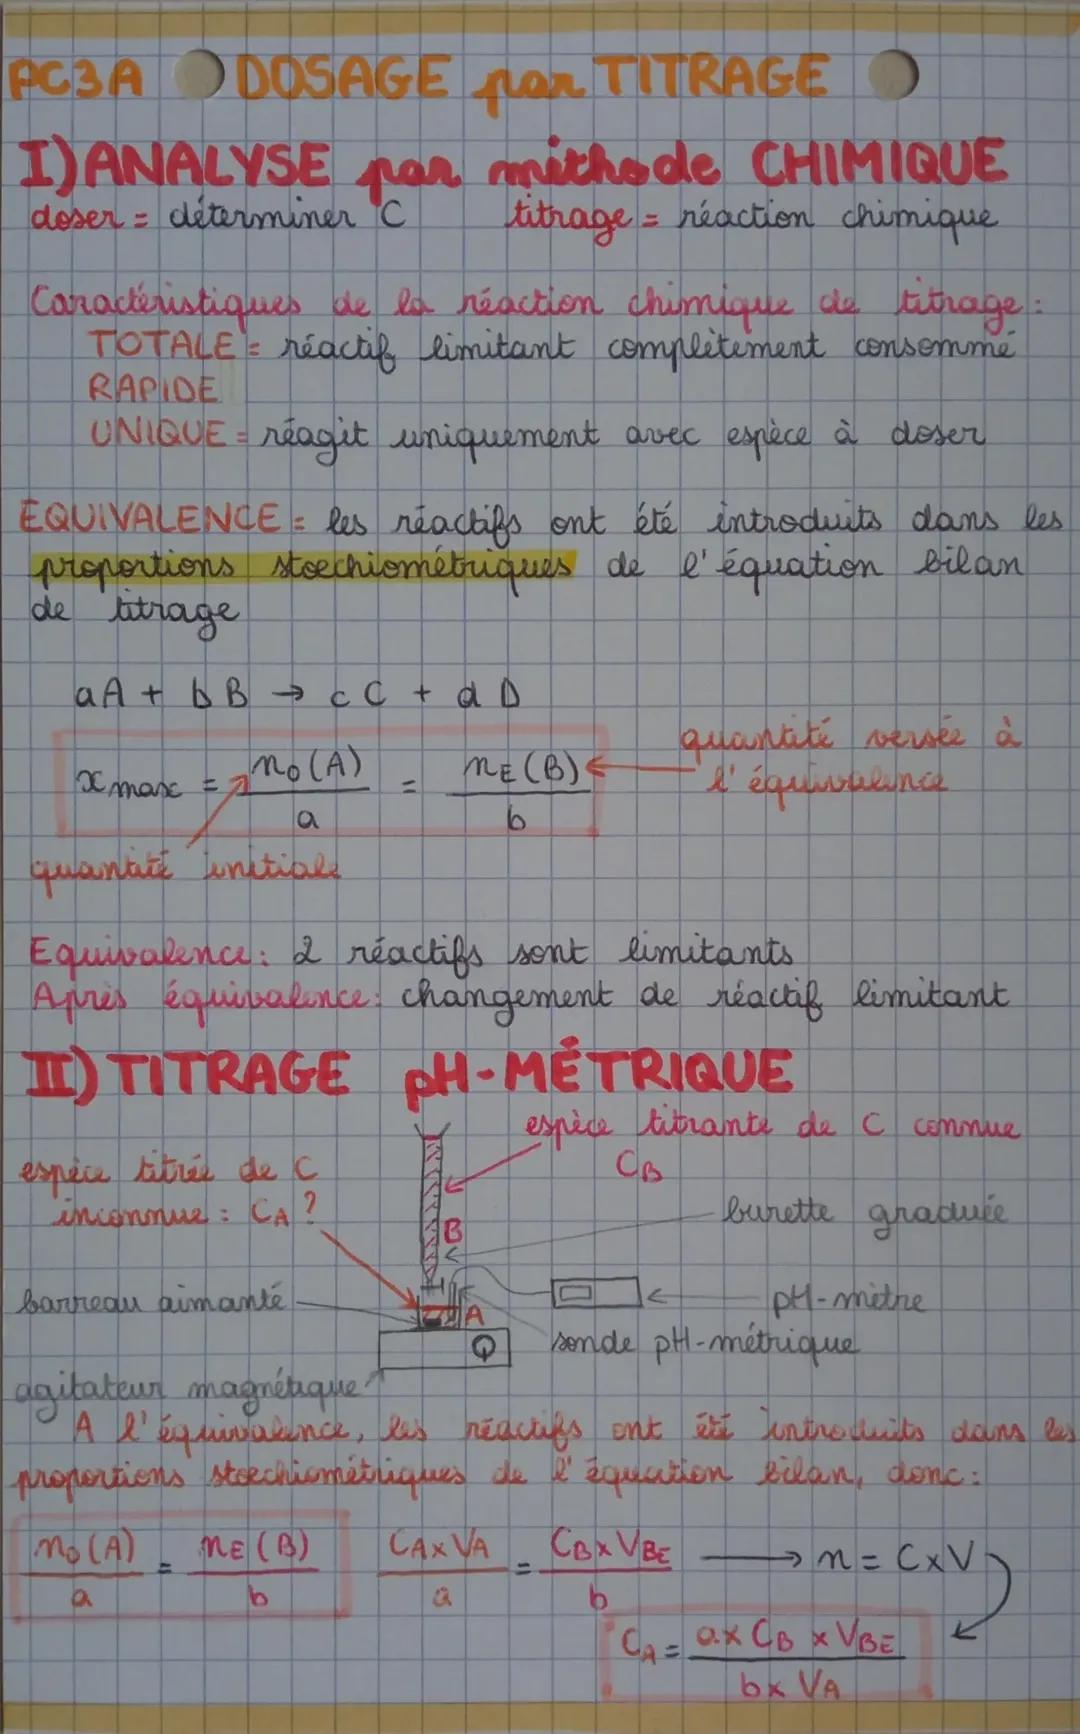 PC3A DOSAGE par TITRAGE
I) ANALYSE par méthode CHIMIQUE
doser = déterminer C titrage = réaction chimique
Caractéristiques de la réaction chimique de titrage :
TOTALE = réactif limitant complètement consommé
RAPIDE
UNIQUE = réagit uniquement avec espèce à doser
EQUIVALENCE = les réactifs ont été introduits dans les
proportions stoechiométriques de l'équation bilan
de titrage
aA + bB → cC + dD
xmax = n0(A)/a = nE(B)/b
quantité versée à
l'équivalence
quantité initiale
Equivalence : 2 réactifs sont limitants
Après équivalence : changement de réactif limitant
II) TITRAGE pH-MÉTRIQUE
espèce titrante de C connue
CB
espèce titrée de C
inconnue : CA ?
burette graduée
B
barreau aimanté
A
pH-mètre
sonde pH-métrique
agitateur magnétique
A l'équivalence, les réactifs ont été introduits dans les
proportions stoechiométriques de l'équation bilan, donc :
n0(A)/a = nE(B)/b CA x VA/a = CB x VBE/b → n = C x V
CA = a x CB x VBE/b x VA